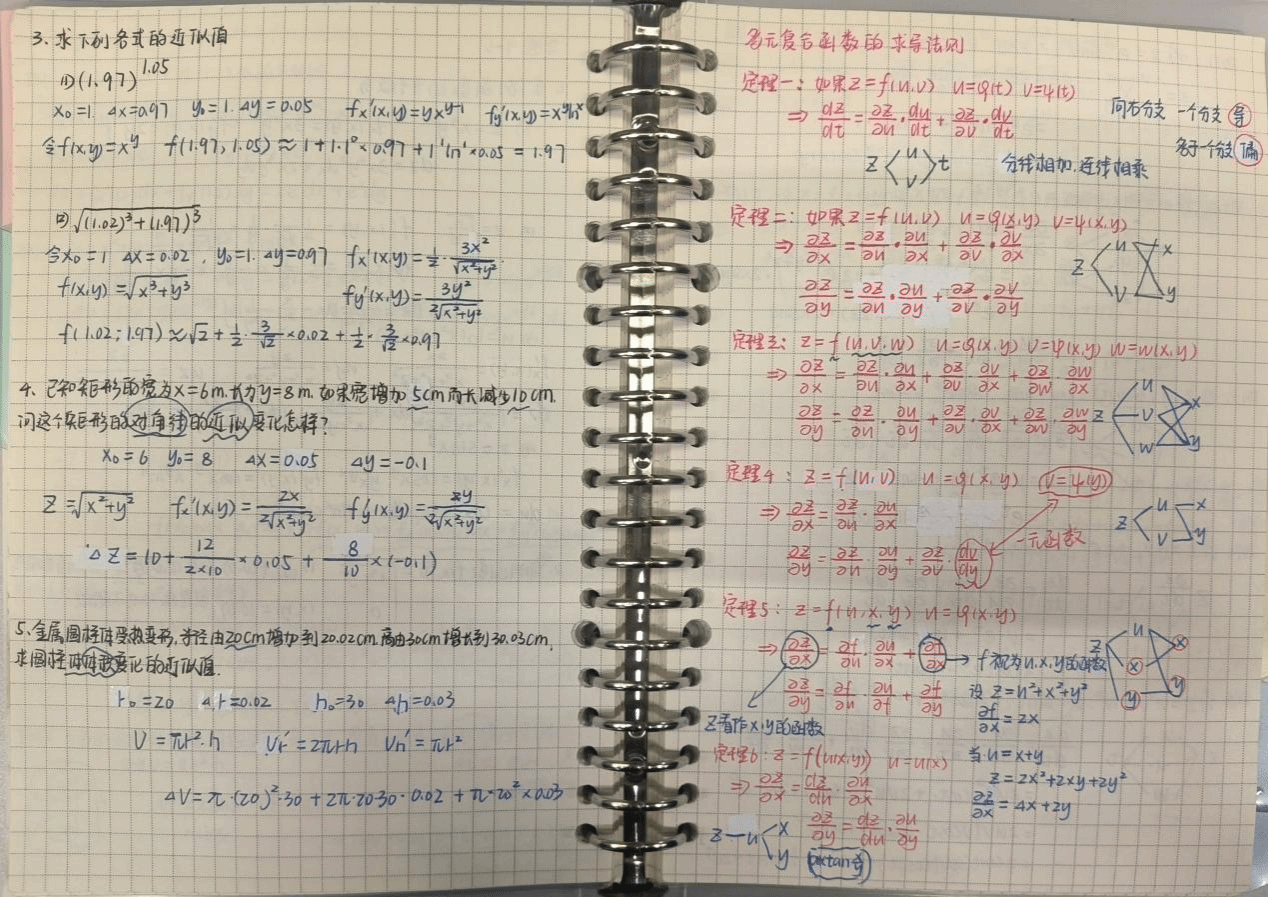 3. 求下列各式的近似值
(1) (1.97)^1.05
x₀=1. Δx=0.97 y₀=1. Δy=0.05 fx'(x,y)=yx^(y-1) fy'(x,y)=x^y ln^x
令f(x,y)=x^y f(1.97,1.05)≈1+1·1⁰×0.97+1'ln'×0.05=1.97
(2) √((1.02)³+(1.97)³)
令x₀=1 Δx=0.02, y₀=1. Δy=0.97 fx'(x,y)=1/2·3x²/√(x³+y³)
f(x,y)=√(x³+y³) fy'(x,y)=3y²/2√(x³+y³)
f(1.02;1.97)≈√2+1/2·3/√2×0.02+1/2·3/√2×0.97
4. 已知矩形的宽为x=6m.长为y=8m.如果宽增加5cm而长减少10cm.
问这个矩形的对角线的近似变化怎样?
x₀=6 y₀=8 Δx=0.05 Δy=-0.1
Z=√(x²+y²) fx'(x,y)=2x/2√(x²+y²) fy'(x,y)=2y/2√(x²+y²)
ΔZ=10+12/(2×10)×0.05+8/10×(-0.1)
5. 金属圆柱体受热变形,半径由20cm增加到20.02cm.高由30cm增长到30.03cm,
求圆柱体体积变化的近似值.
r₀=20 Δr=0.02 h₀=30 Δh=0.03
V=πr²·h Vr'=2πrh Vh'=πr²
ΔV=π·(20)²·30+2π·20·30·0.02+π·20²×0.03
多元复合函数的求导法则
定理一: 如果z=f(u,v) u=φ(t) v=ψ(t)
⇒ dz/dt=∂z/∂u·du/dt+∂z/∂v·dv/dt
向右分支 一个分支 导
多于一个分支 偏
z u v t 分线相加,连线相乘
定理二: 如果z=f(u,v) u=φ(x,y) v=ψ(x,y)
⇒ ∂z/∂x=∂z/∂u·∂u/∂x+∂z/∂v·∂v/∂x
z u v x y
∂z/∂y=∂z/∂u·∂u/∂y+∂z/∂v·∂v/∂y
定理3: z=f(u,v,w) u=φ(x,y) v=ψ(x,y) w=w(x,y)
⇒ ∂z/∂x=∂z/∂u·∂u/∂x+∂z/∂v·∂v/∂x+∂z/∂w·∂w/∂x
∂z/∂y=∂z/∂u·∂u/∂y+∂z/∂v·∂v/∂x+∂z/∂w·∂w/∂y
z u v w x y
定理4: z=f(u,v) u=φ(x,y) v=ψ(y)
⇒ ∂z/∂x=∂z/∂u·∂u/∂x
z u v x y
一元函数
∂z/∂y=∂z/∂u·∂u/∂y+∂z/∂v·dv/dy
定理5: z=f(u,x,y) u=φ(x,y)
⇒ ∂z/∂x=∂f/∂u·∂u/∂x+∂f/∂x → f视为u,x,y的函数
z u x y x y
∂z/∂y=∂f/∂u·∂u/∂f+∂f/∂y
设 z=u²+x²+y²
∂f/∂x=2x
z看作x,y的函数
定理6: z=f(u(x,y)) u=u(x)
当u=x+y
⇒ ∂z/∂x=dz/du·∂u/∂x
z=2x²+2xy+2y²
∂z/∂x=4x+2y
∂z/∂y=dz/du·∂u/∂y
z u x y
arctan x/y